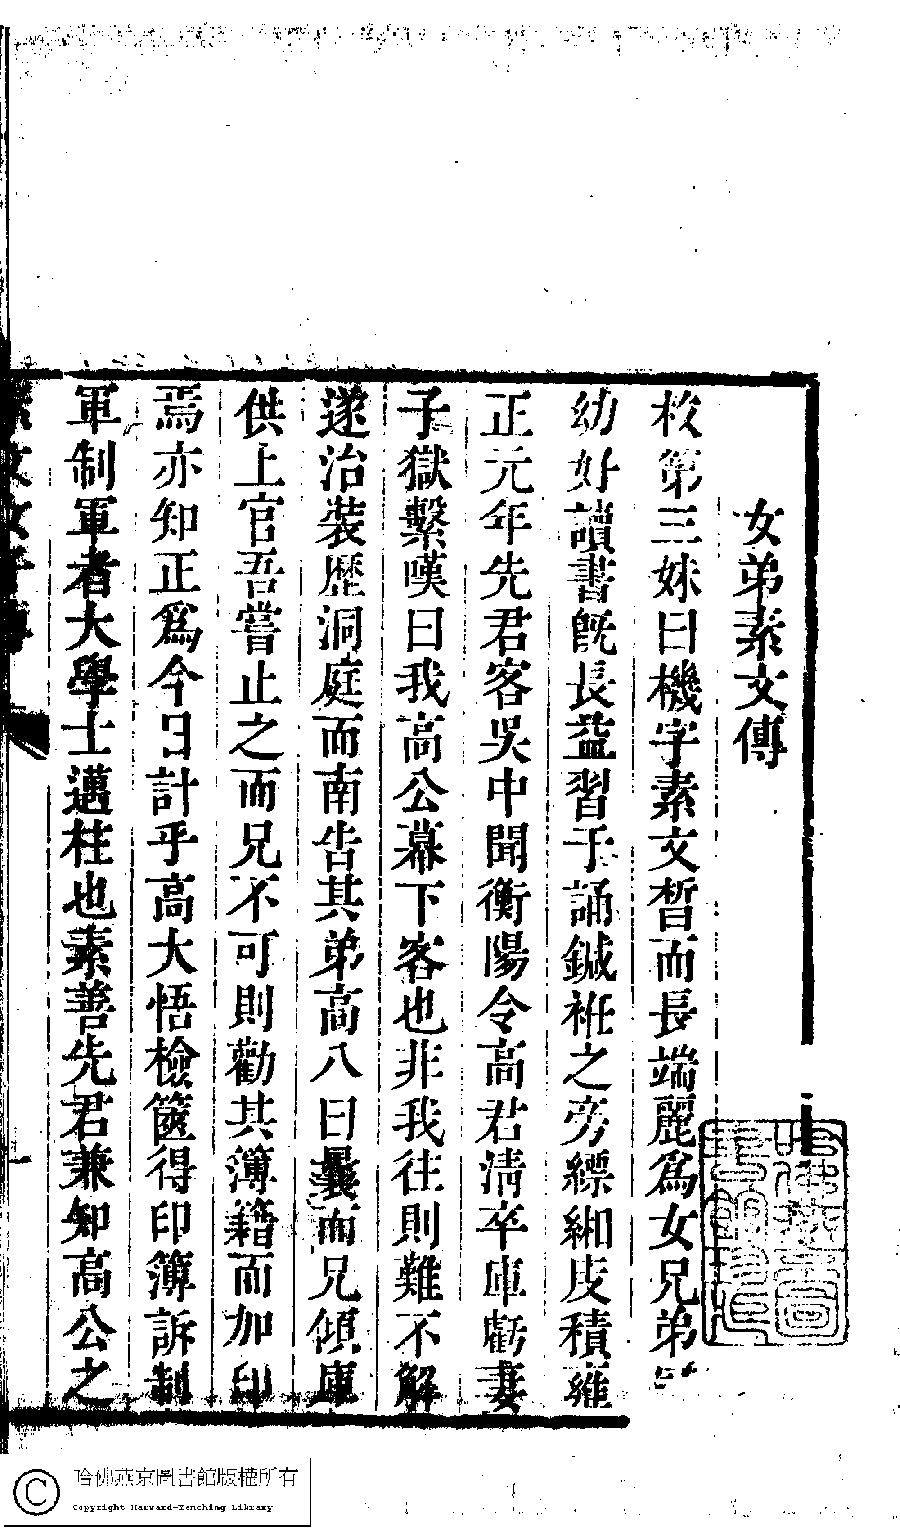 女弟素文傳
枚第三妹曰機字素文皙而長端麗爲女兄弟
幼好讀書旣長益習于誦鍼袵之旁縹緗庋積雍
正元年先君客吳中聞衡陽令高君淸卒庫虧妻
子獄繫嘆曰我高公幕下客也非我往則難不解
遂治装歷洞庭而南告其弟高八曰曩而兄傾庫
供上官吾嘗止之而兄不可則勸其簿籍而加印
焉亦知正爲今日計乎高大悟檢篋得印簿訴制
軍制軍者大學士邁柱也素善先君兼知高公之
哈佛燕京圖書館版權所有
Copyright Harvard-Yenching Library